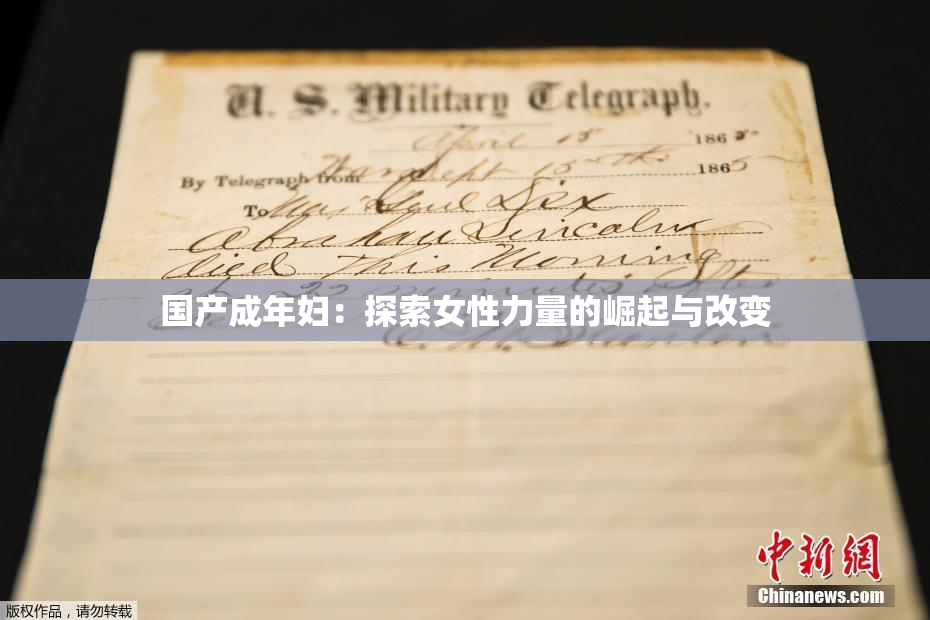 U. S. Military Telegraph.
April 15 1865
By Telegraph from War Dept 15th 1865
To Maj Genl Dix
Abraham Lincoln
died This Morning
at 22 minutes after
国产成年妇：探索女性力量的崛起与改变
Stanton
中新网
Chinanews.com
版权作品，请勿转载